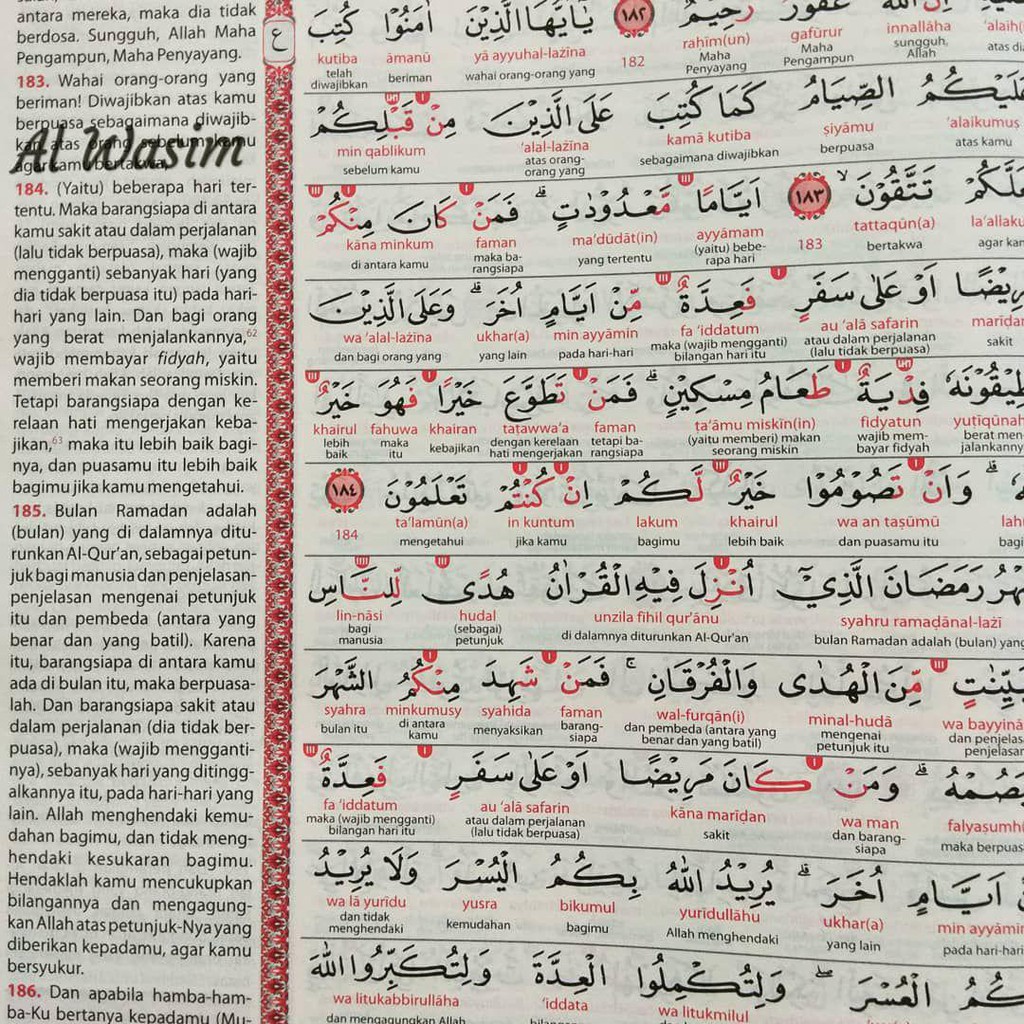 antara mereka, maka dia tidak
berdosa. Sungguh, Allah Maha
Pengampun, Maha Penyayang.
183. Wahai orang-orang yang
beriman! Diwajibkan atas kamu
berpuasa sebagaimana diwajib-
kan atas orang sebelum kamu
agar kamu bertakwa,
Al Wasim
184. (Yaitu) beberapa hari ter-
tentu. Maka barangsiapa di antara
kamu sakit atau dalam perjalanan
(lalu tidak berpuasa), maka (wajib
mengganti) sebanyak hari (yang
dia tidak berpuasa itu) pada hari-
hari yang lain. Dan bagi orang
yang berat menjalankannya,62
wajib membayar fidyah, yaitu
memberi makan seorang miskin.
Tetapi barangsiapa dengan ke-
relaan hati mengerjakan keba-
jikan,63 maka itu lebih baik bagi-
nya, dan puasamu itu lebih baik
bagimu jika kamu mengetahui.
185. Bulan Ramadan adalah
(bulan) yang di dalamnya ditu-
runkan Al-Qur'an, sebagai petun-
juk bagi manusia dan penjelasan-
penjelasan mengenai petunjuk
itu dan pembeda (antara yang
benar dan yang batil). Karena
itu, barangsiapa di antara kamu
ada di bulan itu, maka berpuasa-
lah. Dan barangsiapa sakit atau
dalam perjalanan (dia tidak ber-
puasa), maka (wajib mengganti-
nya), sebanyak hari yang ditingg-
alkannya itu, pada hari-hari yang
lain. Allah menghendaki kemu-
dahan bagimu, dan tidak meng-
hendaki kesukaran bagimu.
Hendaklah kamu mencukupkan
bilangannya dan mengagung-
kan Allah atas petunjuk-Nya yang
diberikan kepadamu, agar kamu
bersyukur.
186. Dan apabila hamba-ham-
ba-Ku bertanya kepadamu (Mu-
ع
اللّٰهَ غَفُوْرٌ رَّحِيْمٌ ١٨٢ يٰٓاَيُّهَا الَّذِيْنَ اٰمَنُوْا كُتِبَ
innallāha gafūrur raḥīm(un) 182 yā ayyuhal-lażīna āmanū kutiba
sungguh, Allah Maha Pengampun Maha Penyayang wahai orang-orang yang beriman telah diwajibkan
عَلَيْكُمُ الصِّيَامُ كَمَا كُتِبَ عَلَى الَّذِيْنَ مِنْ قَبْلِكُمْ
'alaikumuṣ ṣiyāmu kamā kutiba 'alal-lażīna min qablikum
atas kamu berpuasa sebagaimana diwajibkan atas orang-orang yang sebelum kamu
تَتَّقُوْنَۙ ١٨٣ اَيَّامًا مَّعْدُوْدٰتٍۗ فَمَنْ كَانَ مِنْكُمْ
tattaqūn(a) 183 ayyāmam ma'dūdāt(in) faman kāna minkum
agar bertakwa (yaitu) beberapa hari yang tertentu maka barangsiapa di antara kamu
اَوْ عَلٰى سَفَرٍ فَعِدَّةٌ مِّنْ اَيَّامٍ اُخَرَۗ وَعَلَى الَّذِيْنَ
au 'alā safarin fa 'iddatum min ayyāmin ukhar(a) wa 'alal-lażīna
sakit atau dalam perjalanan (lalu tidak berpuasa) maka (wajib mengganti) bilangan hari itu pada hari-hari yang lain dan bagi orang yang
فِدْيَةٌ طَعَامُ مِسْكِيْنٍۗ فَمَنْ تَطَوَّعَ خَيْرًا فَهُوَ خَيْرٌ
fidyatun ta'āmu miskīn(in) faman taṭawwa'a khairan fahuwa khairul
wajib membayar fidyah (yaitu memberi) makan seorang miskin tetapi barangsiapa dengan kerelaan hati mengerjakan kebajikan maka itu lebih baik
وَاَنْ تَصُوْمُوْا خَيْرٌ لَّكُمْ اِنْ كُنْتُمْ تَعْلَمُوْنَ ١٨٤
wa an taṣūmū khairul lakum in kuntum ta'lamūn(a) 184
dan puasamu itu lebih baik bagimu jika kamu mengetahui
رَمَضَانَ الَّذِيْٓ اُنْزِلَ فِيْهِ الْقُرْاٰنُ هُدًى لِّلنَّاسِ
syahru ramaḍānal-lażī unzila fīhil qur'ānu hudal lin-nāsi
bulan Ramadan adalah (bulan) yang di dalamnya diturunkan Al-Qur'an (sebagai) petunjuk bagi manusia
مِّنَ الْهُدٰى وَالْفُرْقَانِۚ فَمَنْ شَهِدَ مِنْكُمُ الشَّهْرَ
minal-hudā wal-furqān(i) faman syahida minkumusy syahra
mengenai petunjuk itu dan pembeda (antara yang benar dan yang batil) barangsiapa menyaksikan di antara kamu bulan itu
وَمَنْ كَانَ مَرِيْضًا اَوْ عَلٰى سَفَرٍ فَعِدَّةٌ
wa man kāna marīḍan au 'alā safarin fa 'iddatum
dan barangsiapa sakit atau dalam perjalanan (lalu tidak berpuasa) maka (wajib mengganti) bilangan hari itu
اَيَّامٍ اُخَرَۗ يُرِيْدُ اللّٰهُ بِكُمُ الْيُسْرَ وَلَا يُرِيْدُ
min ayyāmin ukhar(a) yurīdullāhu bikumul yusra wa lā yurīdu
pada hari-hari yang lain Allah menghendaki bagimu kemudahan dan tidak menghendaki
الْعُسْرَۖ وَلِتُكْمِلُوا الْعِدَّةَ وَلِتُكَبِّرُوا اللّٰهَ
wa litukmilul 'iddata wa litukabbirullāha
dan mengagungkan Allah